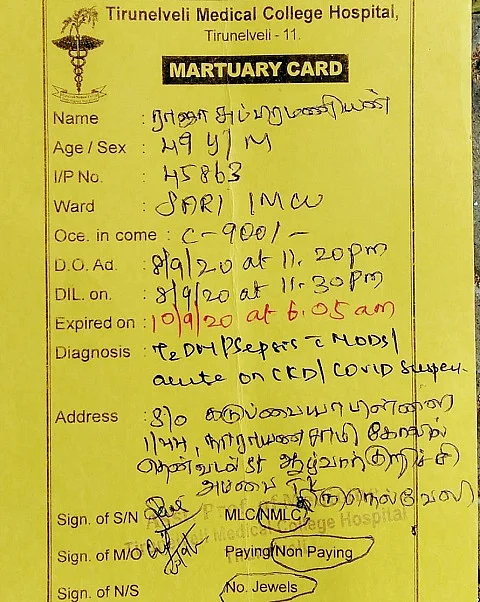 Tirunelveli Medical College Hospital,
Tirunelveli - 11.
MARTUARY CARD
Name : ராஜா சுப்பிரமணியன்
Age / Sex : 49 y / M
I/P No. : 45863
Ward : SARI IMCU
Occ. in come : C-900/-
D.O. Ad. : 8/9/20 at 11.20pm
DIL. on. : 8/9/20 at 11.30pm
Expired on : 10/9/20 at 6.05 am
Diagnosis : T2DM/Sepsis c MODS/
acute on CKD/ COVID Suspect
Address : S/o கருப்பையா பிள்ளை
1/44, நாராயணசாமி கோவில்
தென்வடல் st ஆழ்வார்குறிச்சி
அம்பை TK
திருநெல்வேலி
Sign. of S/N MLC/NMLC
Sign. of M/O Paying/Non Paying
Tirunelveli Medical College Hospital
Tirunelveli
Sign. of N/S No. Jewels